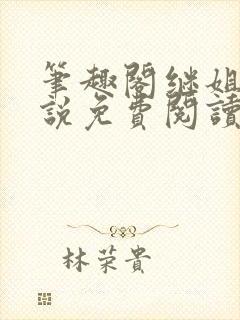 筆趣閣繼姐
說免費閱讀
林荣貴